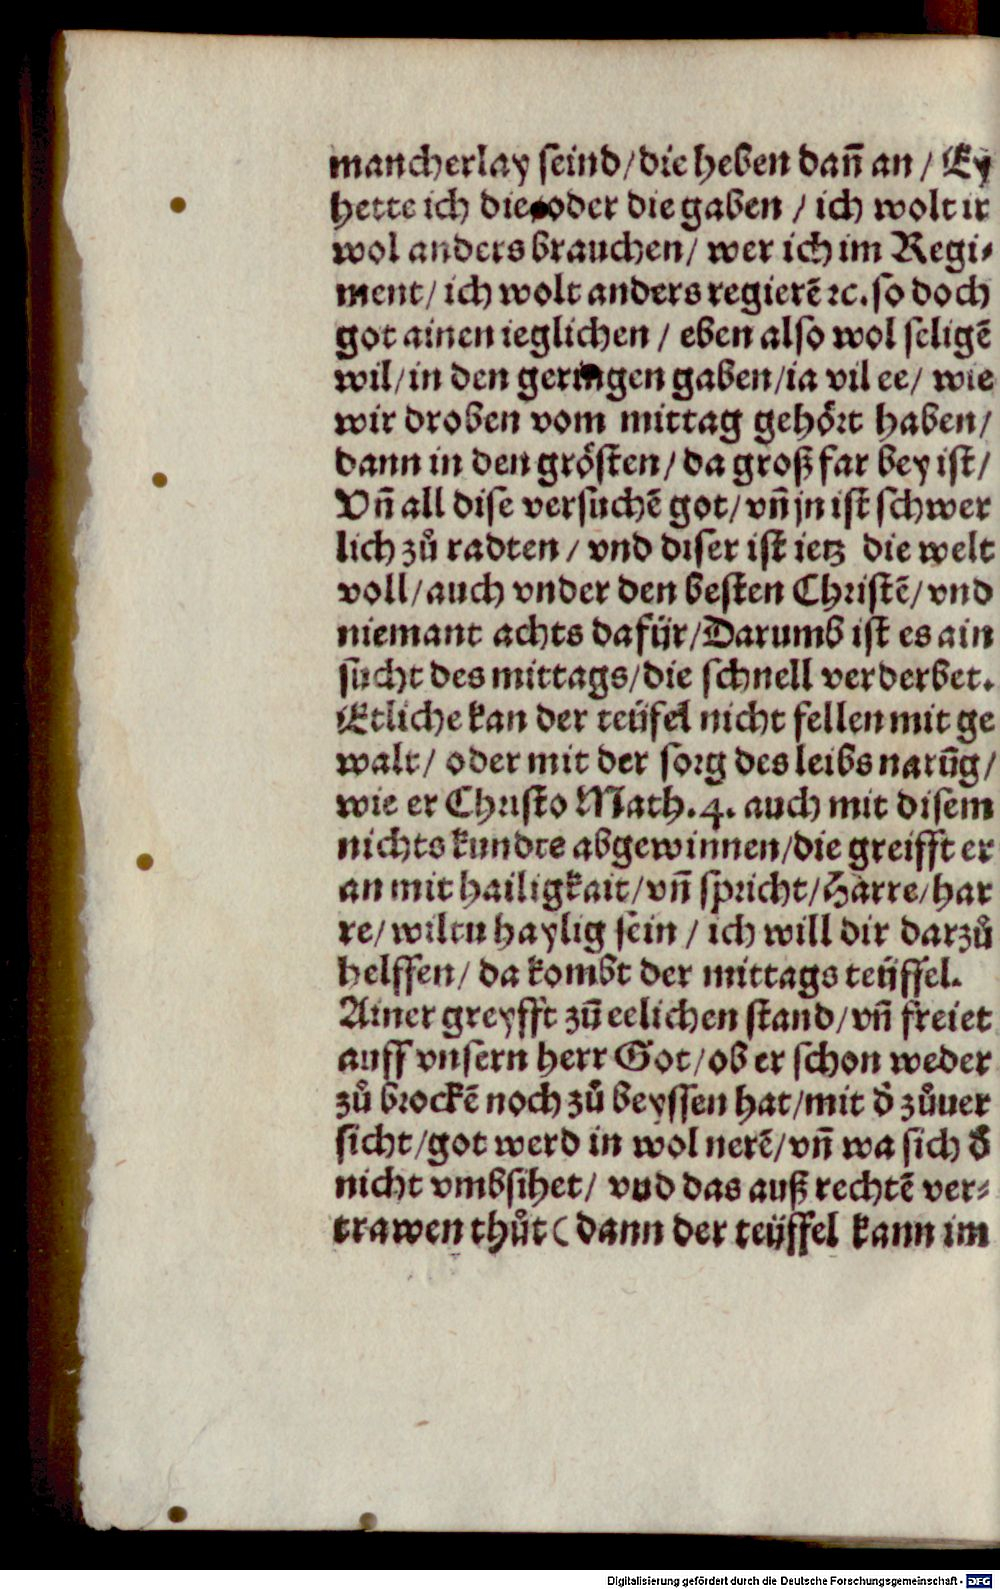 mancherlay seind/die heben dañ an / Ey
hette ich die oder die gaben / ich wolt ir
wol anders brauchen/ wer ich im Regi⸗
ment/ ich wolt anders regierẽ ꝛc. so doch
got ainen ieglichen / eben also wol seligẽ
wil/in den geringen gaben/ia vil ee/ wie
wir droben vom mittag gehört haben/
dann in den grösten/da groß far bey ist/
Vñ all dise versuchẽ got/vñ jn ist schwer
lich zů radten / vnd diser ist ietz die welt
voll/auch vnder den besten Christẽ/vnd
niemant achts dafür/Darumb ist es ain
sucht des mittags/die schnell verderbet.
Etliche kan der teüfel nicht fellen mit ge
walt/ oder mit der sorg des leibs narũg/
wie er Christo Math.4. auch mit disem
nichts kundte abgewinnen/die greifft er
an mit hailigkait/vñ spricht/Harre/har
re/wiltu haylig sein / ich will dir darzů
helffen/ da kombt der mittags teüffel.
Ainer greyfft zũ eelichen stand/vñ freiet
auff vnsern herr Got/ob er schon weder
zů brockẽ noch zů beyssen hat/mit d̕ zůuer
sicht/got werd in wol nerẽ/vñ wa sich d̕
nicht vmbsihet/ vnd das auß rechtẽ ver⸗
trawen thůt (dann der teüffel kann im
Digitalisierung gefördert durch die Deutsche Forschungsgemeinschaft - DFG